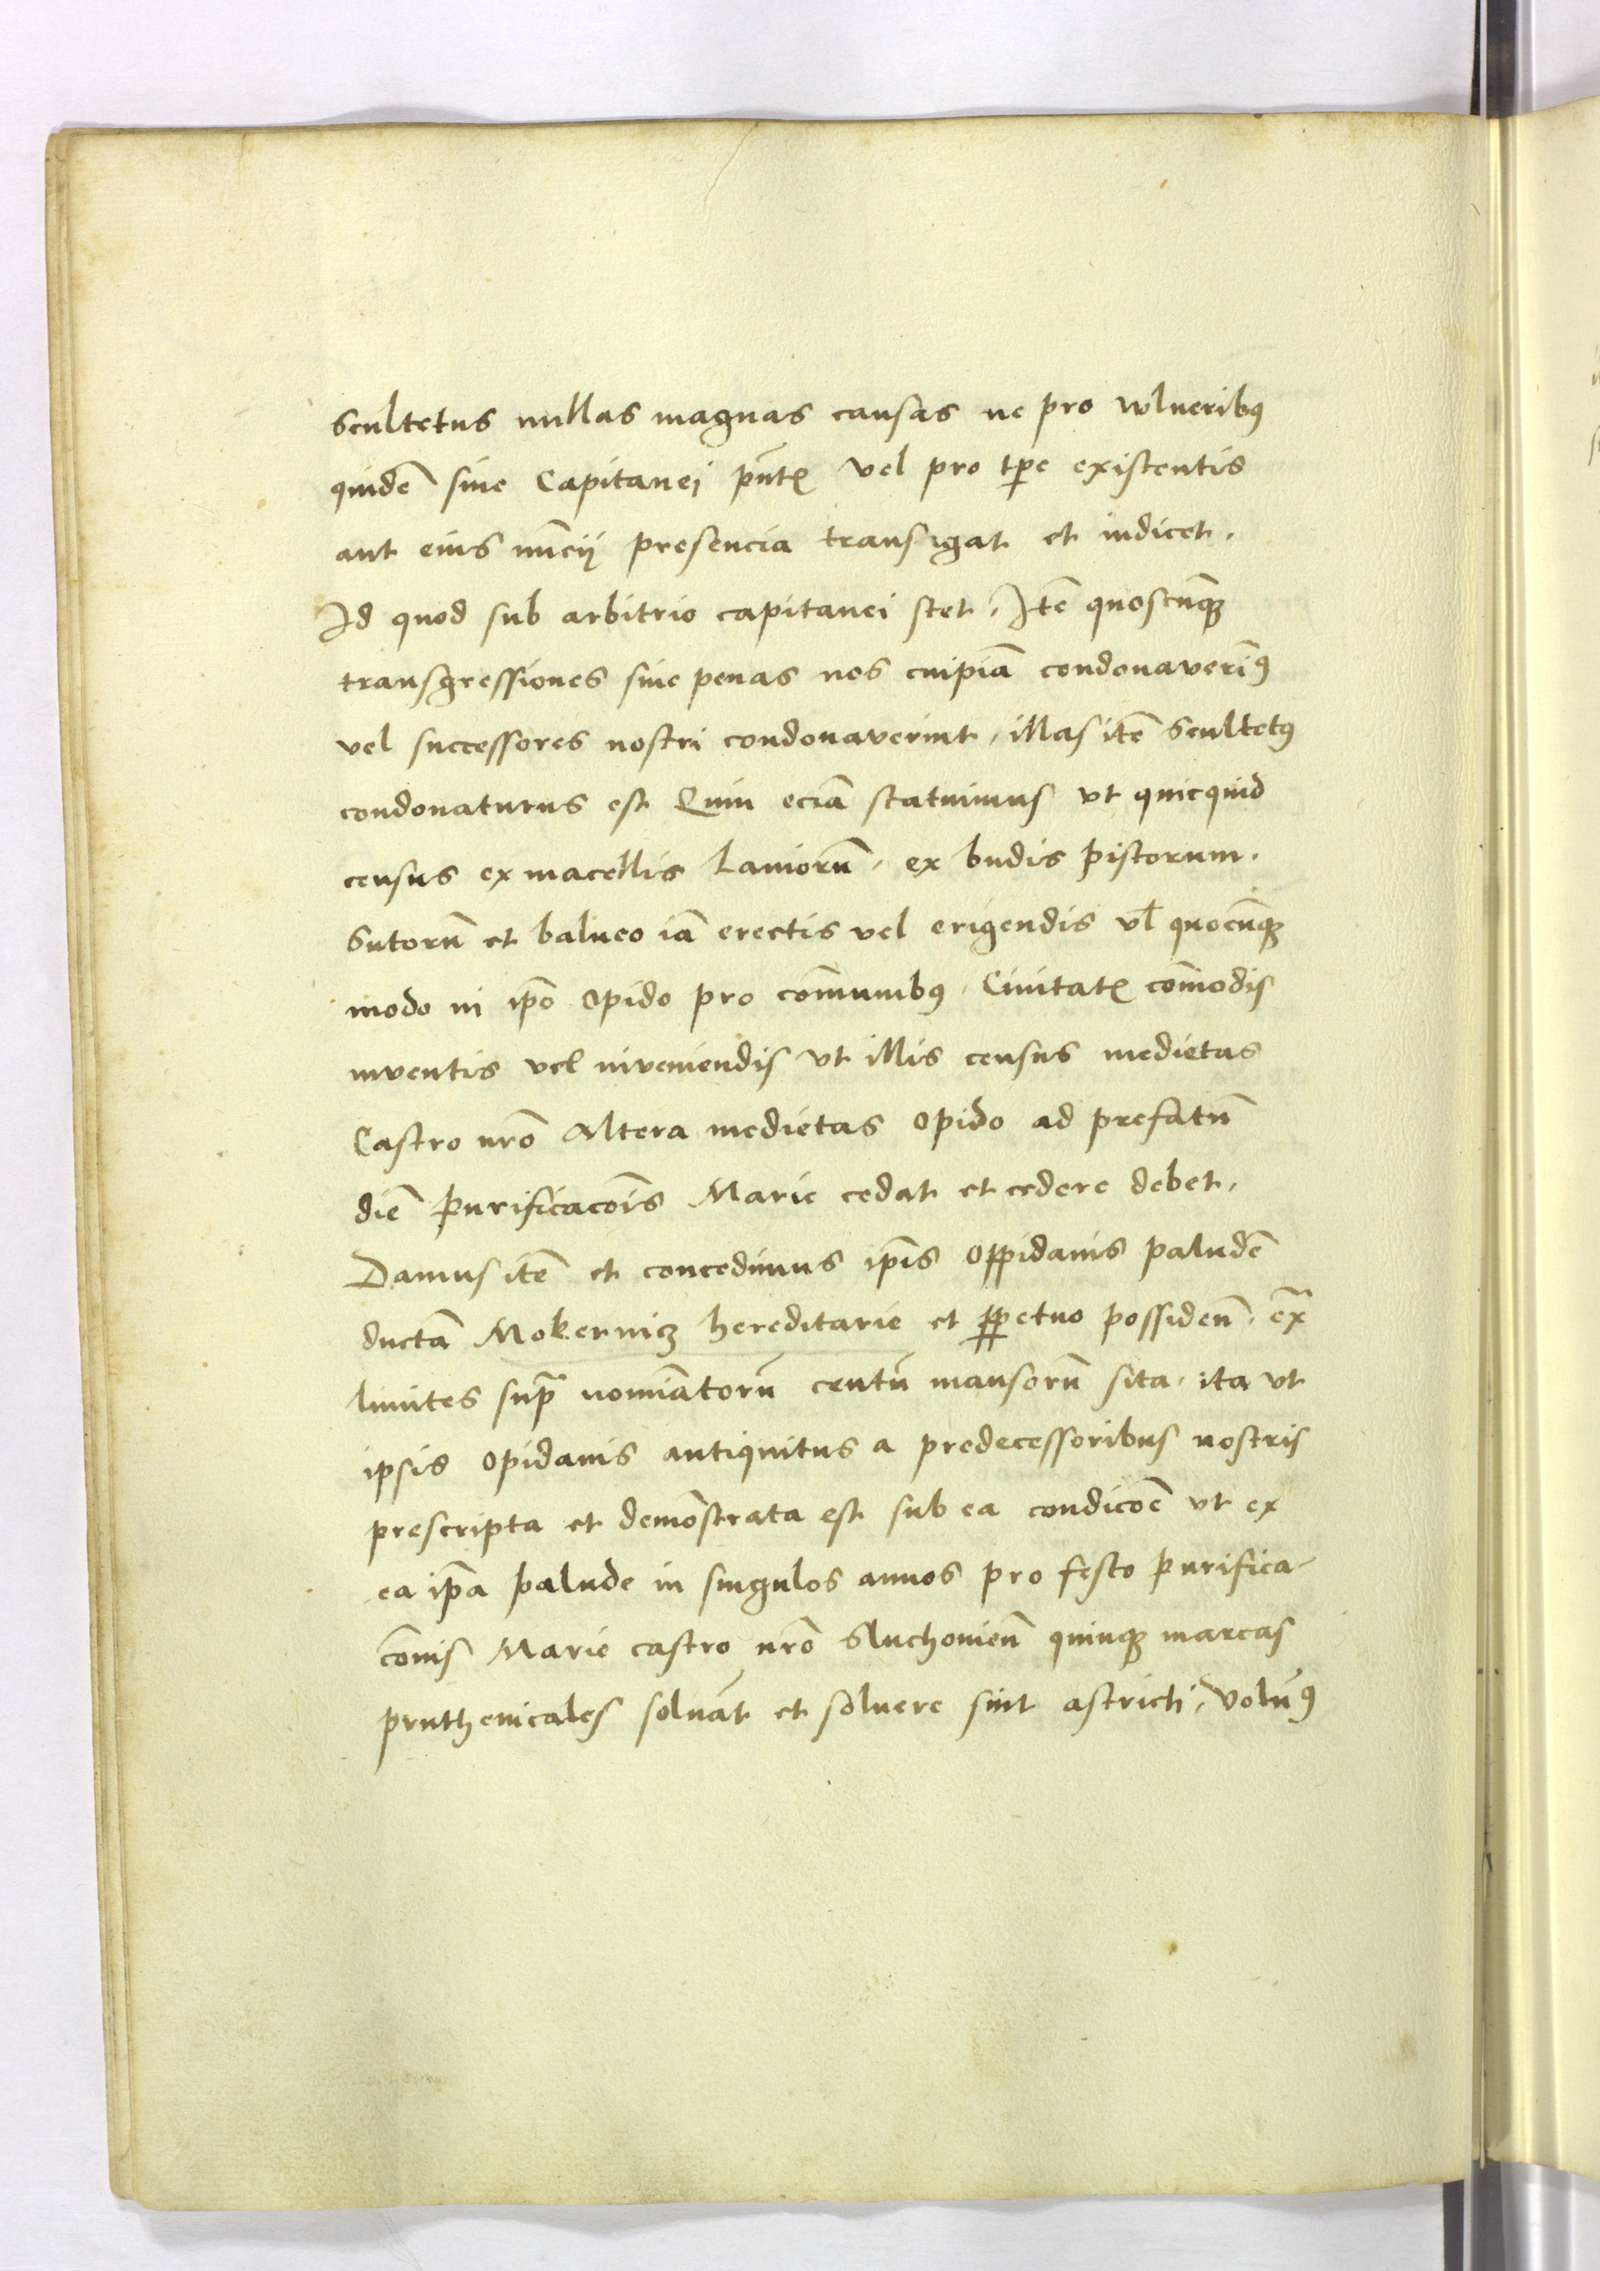 Scultetus nullas magnas causas ne pro wlneribꝯ
quidē sine Capitanei pñtꝭ vel pro tp̄e existentis
aut eius nūcij presencia transigat et iudicet.
Id quod sub arbitrio capitanei stet. Itē quoscūqꝫ
transgressiones siue penas nos cuipiā condonaverīꝯ
vel successores nostri condonaverint, illas itē Scultetꝯ
condonaturus est Quin eciā statuimus vt quicquid
census ex macellis Laniorū, ex budis pistorum.
Sutorū et balneo iā erectis vel erigendis vl̄ quocūqꝫ
modo in ip̄o Opido pro cōmunibꝯ Ciuitatꝭ cōmodis
inventis vel inveniendis vt illis census medietas
Castro nr̄o Altera medietas Opido ad prefatū
diē Purificacōis Marie cedat et cedere debet.
Damus itē et concedimus ip̄is Oppidanis paludē
dictam Mokernicz hereditarie et ꝑpetuo possideñ. ex̄
limites sup̄ nomiatorū centū mansorū sita, ita vt
ipsis Opidanis antiquitus a predecessoribus nostris
prescripta et demōstrata est sub ea condicōe vt ex
ea ip̄a palude in singulos annos pro festo Purifica-
cōnis Marie castro nr̄o Sluchovień quinqꝫ marcas
pruthenicales soluāt et soluere sint astricti, Volum̄ꝯ